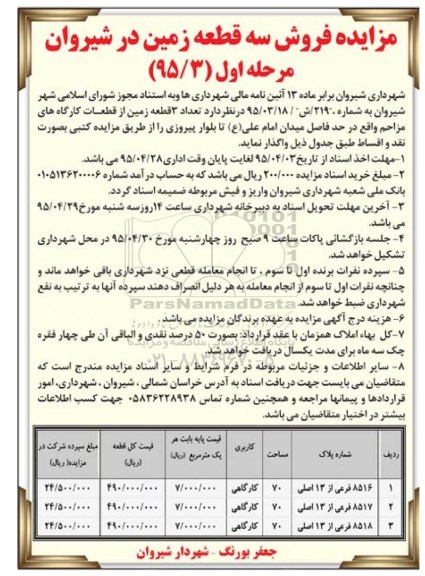 مزایده فروش سه قطعه زمین در شیروان
مرحله اول (۹۵/۳)
شهرداری شیروان برابر ماده ۱۳ آئین نامه مالی شهرداری ها وبه استناد مجوز شورای اسلامی شهر
شیروان به شماره ،"۲۱۹/ش" / ۹۵/۰۳/۱۸ درنظردارد تعداد ۳قطعه زمین از قطعات کارگاه های
مزاحم واقع در حد فاصل میدان امام علی(ع) تا بلوار پیروزی را از طریق مزایده کتبی بصورت
نقد و اقساط طبق جدول ذیل واگذار نماید.
۱-مهلت اخذ اسناد از تاریخ۹۵/۰۴/۰۳ لغایت پایان وقت اداری۹۵/۰۴/۲۸ می باشد.
۲-مبلغ خرید اسناد مزایده ۲۰۰/۰۰۰ ریال می باشد که به حساب درآمد شماره ۰۱۰۵۱۳۶۲۰۰۰۰۶
بانک ملی شعبه شهرداری شیروان واریز و فیش مربوطه ضمیمه اسناد گردد.
۳- آخرین مهلت تحویل اسناد به دبیرخانه شهرداری ساعت ۱۴روزسه شنبه مورخ۹۵/۰۴/۲۹
می باشد.
۴- جلسه بازگشائی پاکات ساعت ۹ صبح روز چهارشنبه مورخ ۹۵/۰۴/۳۰ در محل شهرداری
تشکیل خواهد شد.
۵- سپرده نفرات برنده اول تا سوم ، تا انجام معامله قطعی نزد شهرداری باقی خواهد ماند و
چنانچه نفرات اول تا سوم از انجام معامله به هر دلیل انصراف دهند سپرده آنها به ترتیب به نفع
شهرداری ضبط خواهد شد.
ParsNamadData
۶- هزینه درج آگهی مزایده به عهده برندگان مزایده می باشد.
۷-کل بهاء املاک همزمان با عقد قرارداد: بصورت ۵۰ درصد نقدی و الباقی آن طی چهار فقره
چک سه ماه برای مدت یکسال دریافت خواهد شد.
۸- سایر اطلاعات و جزئیات مربوطه در فرم شرایط و سایر اسناد مزایده مندرج است که
متقاضیان می بایست جهت دریافت اسناد به آدرس خراسان شمالی ، شیروان ، شهرداری، امور
قراردادها و پیمانها مراجعه و همچنین شماره تماس ۰۵۸۳۶۲۲۸۹۳۸ جهت کسب اطلاعات
بیشتر در اختیار متقاضیان می باشد.
ردیف شماره پلاک مساحت کاربری قیمت پایه بابت هر یک مترمربع (ریال) قیمت کل قطعه (ریال) مبلغ سپرده شرکت در مزایده( ریال)
۱ ۸۵۱۶ فرعی از ۱۳ اصلی ۷۰ کارگاهی ۷/۰۰۰/۰۰۰ ۴۹۰/۰۰۰/۰۰۰ ۲۴/۵۰۰/۰۰۰
۲ ۸۵۱۷ فرعی از ۱۳ اصلی ۷۰ کارگاهی ۷/۰۰۰/۰۰۰ ۴۹۰/۰۰۰/۰۰۰ ۲۴/۵۰۰/۰۰۰
۳ ۸۵۱۸ فرعی از ۱۳ اصلی ۷۰ کارگاهی ۷/۰۰۰/۰۰۰ ۴۹۰/۰۰۰/۰۰۰ ۲۴/۵۰۰/۰۰۰
جعفر بورنگ - شهردار شیروان